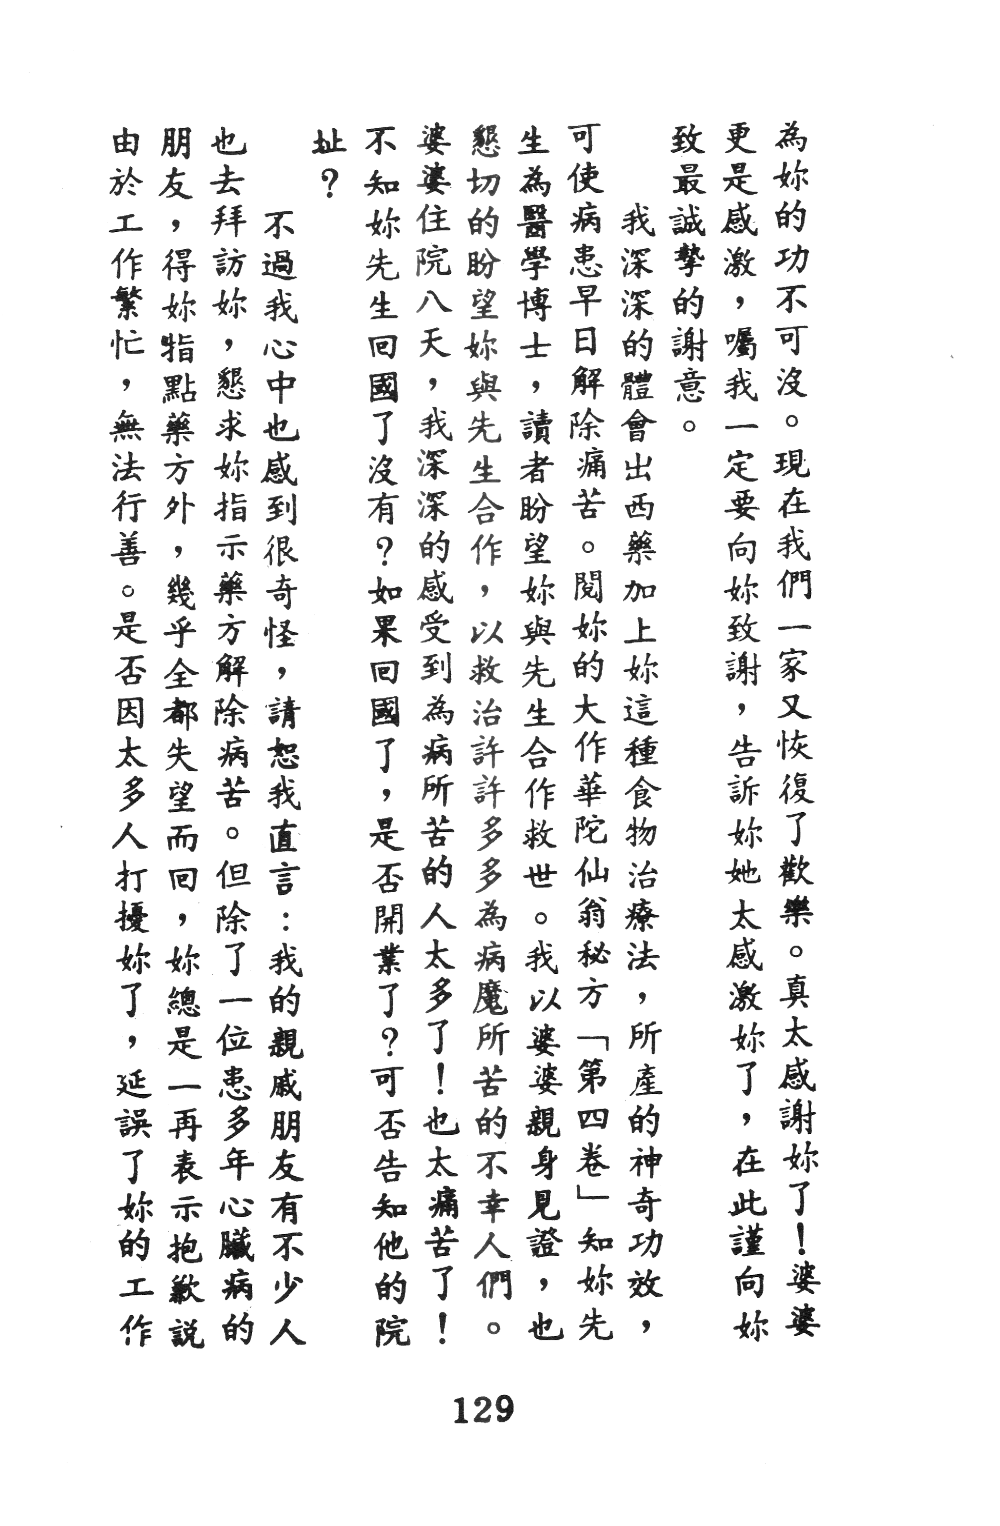 為妳的功不可沒。現在我們一家又恢復了歡樂。真太感謝妳了！婆婆
更是感激，囑我一定要向妳致謝，告訴妳她太感激妳了，在此謹向妳
致最誠摯的謝意。
我深深的體會出西藥加上妳這種食物治療法，所產的神奇功效，
可使病患早日解除痛苦。閱妳的大作華陀仙翁秘方「第四卷」知妳先
生為醫學博士，讀者盼望妳與先生合作救世。我以婆婆親身見證，也
懇切的盼望妳與先生合作，以救治許許多多為病魔所苦的不幸人們。
婆婆住院八天，我深深的感受到為病所苦的人太多了！也太痛苦了！
不知妳先生回國了沒有？如果回國了，是否開業了？可否告知他的院
址？
不過我心中也感到很奇怪，請恕我直言：我的親戚朋友有不少人
也去拜訪妳，懇求妳指示藥方解除病苦。但除了一位患多年心臟病的
朋友，得妳指點藥方外，幾乎全都失望而回，妳總是一再表示抱歉說
由於工作繁忙，無法行善。是否因太多人打擾妳了，延誤了妳的工作
129